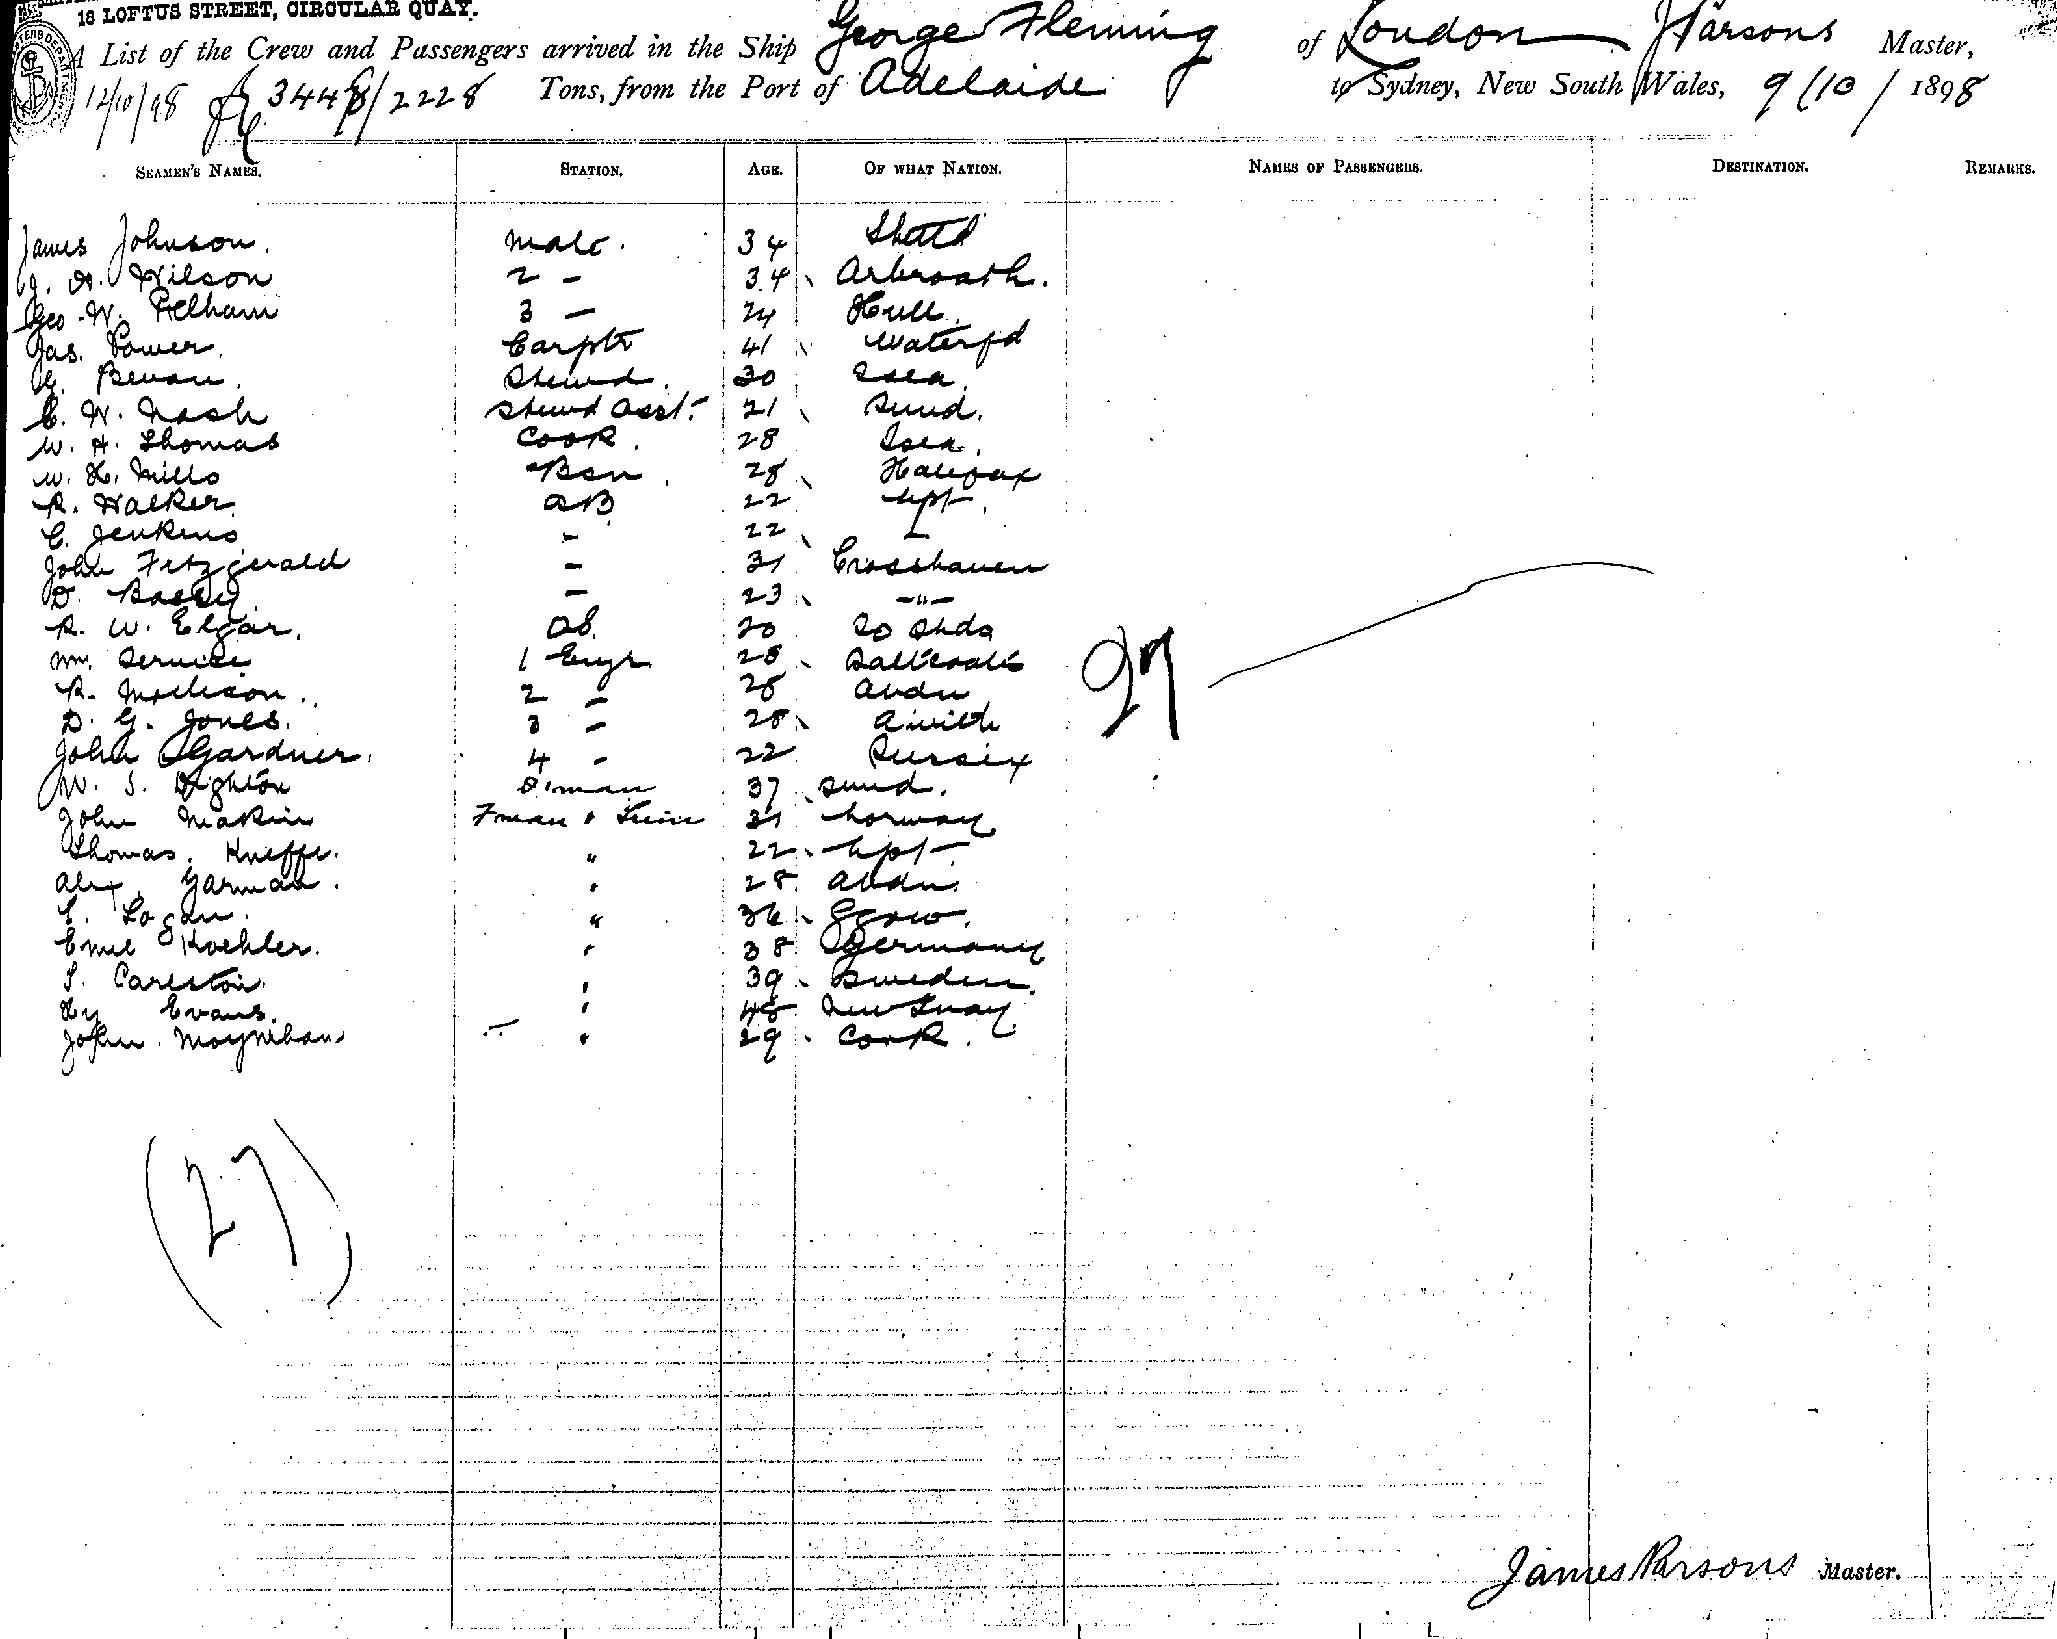 18 LOFTUS STREET, CIRCULAR QUAY.
A List of the Crew and Passengers arrived in the Ship George Fleming of London J Parsons Master,
12/10/98 3448/2228 Tons, from the Port of Adelaide to Sydney, New South Wales, 9/10/1898
SEAMEN'S NAMES. STATION. AGE. OF WHAT NATION. NAMES OF PASSENGERS. DESTINATION. REMARKS.
James Johnson. Mate. 34 Shetd
J. H. Wilson 2 - 34 Arbroath.
Geo. W. Pelham 3 - 24 Hull.
Jas. Power. Carptr 41 Waterfd
G. Bevan. Stewd. 30 Ssea.
C. W. Nash Stewd Asst. 21 Sund.
W. H. Thomas Cook. 28 Ssea.
W. H. Mills Bsn. 28 Halifax
R. Walker. AB 22 Npt.
C. Jenkins - 22
John Fitzgerald - 31 Crosshaven
D. - 23 -"-
R. W. Elgar. OS. 20 So Shds
Wm. Service 1 Engr 28 Saltcoats
R. 2 - 28 Abdn
D. G. Jones. 3 - 28 Awith
John Gardner. 4 - 22
W. S. Dighton 37 Sund.
John Makin Fman & Trim 31 Norway
Thomas. Kneffe. " 22 Npt
Alex. Garman. " 28 Abdn.
E. Logan. " 36 Ggow.
Emil Koehler. " 38 Germany
S. " 39 Sweden.
Hy Evans. " 48 New Quay
John Moynihan " 29 Cork.
27
(27)
James Parsons Master.